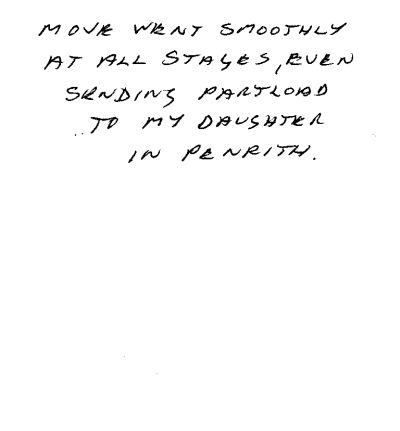 MOVE WENT SMOOTHLY
AT ALL STAGES, EVEN
SENDING PARTLOAD
TO MY DAUGHTER
IN PENRITH.